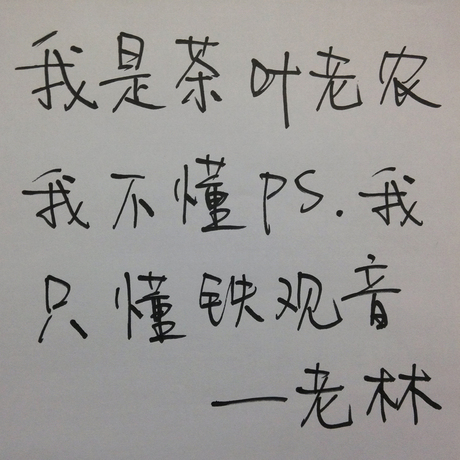 我是茶叶老农
我不懂PS.我
只懂铁观音
—老林